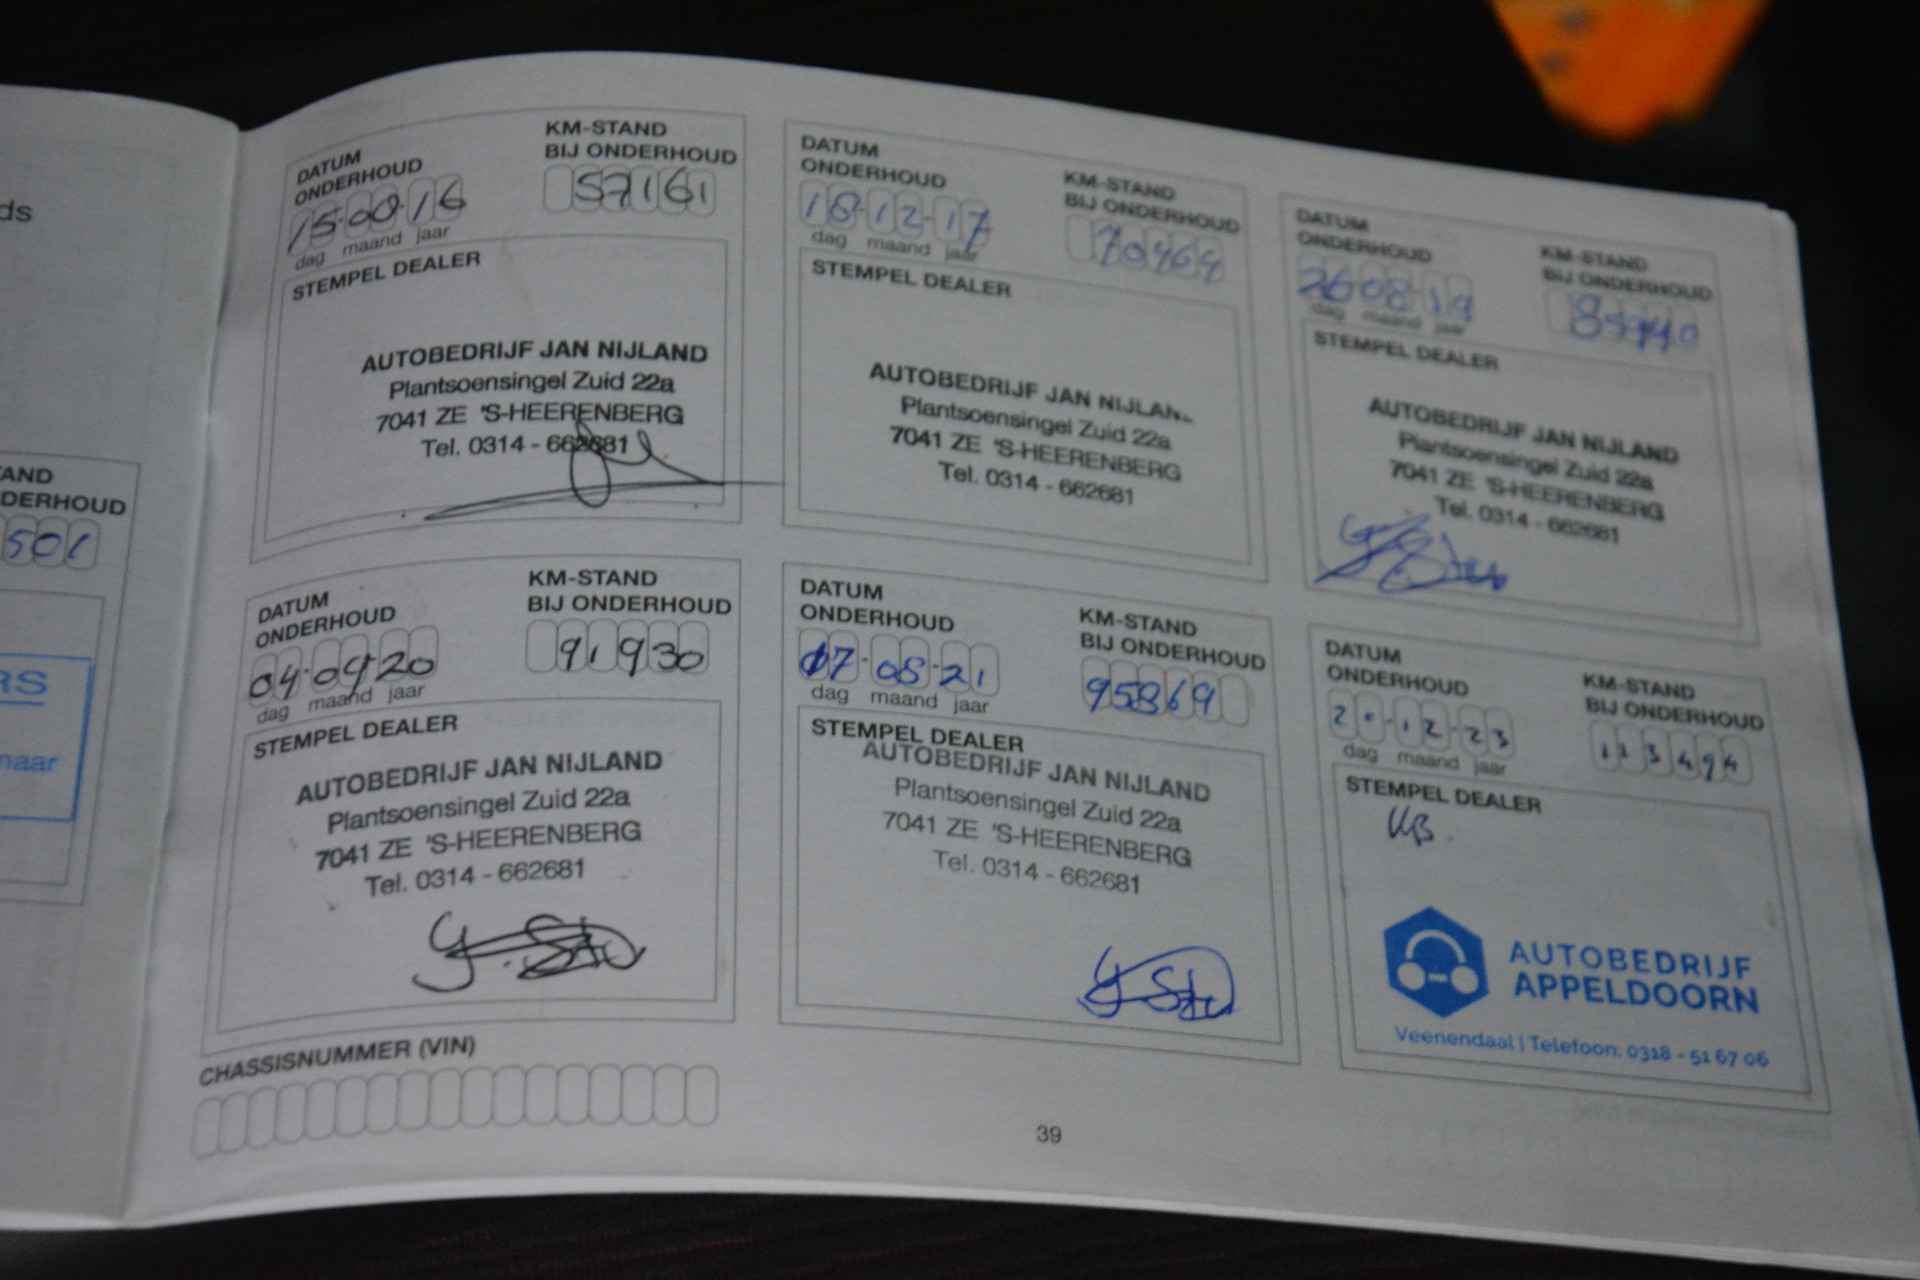 ds
AND
DERHOUD
501
RS
naar
DATUM
ONDERHOUD
KM-STAND
BIJ ONDERHOUD
57161
dag maand jaar
STEMPEL DEALER
AUTOBEDRIJF JAN NIJLAND
Plantsoensingel Zuid 22a
7041 ZE 'S-HEERENBERG
Tel. 0314 - 662681
DATUM
ONDERHOUD
KM-STAND
BIJ ONDERHOUD
18-12-17
70464
dag maand jaar
STEMPEL DEALER
AUTOBEDRIJF JAN NIJLAN
Plantsoensingel Zuid 22a
7041 ZE 'S-HEERENBERG
Tel. 0314 - 662681
DATUM
ONDERHOUD
KM-STAND
BIJ ONDERHOUD
26 08 19
dag maand jaar
STEMPEL DEALER
AUTOBEDRIJF JAN NIJLAND
Plantsoensingel Zuid 22a
7041 ZE 'S-HEERENBERG
Tel. 0314 - 662681
DATUM
ONDERHOUD
KM-STAND
BIJ ONDERHOUD
04-09-20
91930
dag maand jaar
STEMPEL DEALER
AUTOBEDRIJF JAN NIJLAND
Plantsoensingel Zuid 22a
7041 ZE 'S-HEERENBERG
Tel. 0314 - 662681
DATUM
ONDERHOUD
KM-STAND
BIJ ONDERHOUD
07-08-21
95869
dag maand jaar
STEMPEL DEALER
AUTOBEDRIJF JAN NIJLAND
Plantsoensingel Zuid 22a
7041 ZE 'S-HEERENBERG
Tel. 0314 - 662681
DATUM
ONDERHOUD
KM-STAND
BIJ ONDERHOUD
20-12-23
113494
dag maand jaar
STEMPEL DEALER
AUTOBEDRIJF
APPELDOORN
Veenendaal | Telefoon: 0318 - 51 67 06
CHASSISNUMMER (VIN)
39